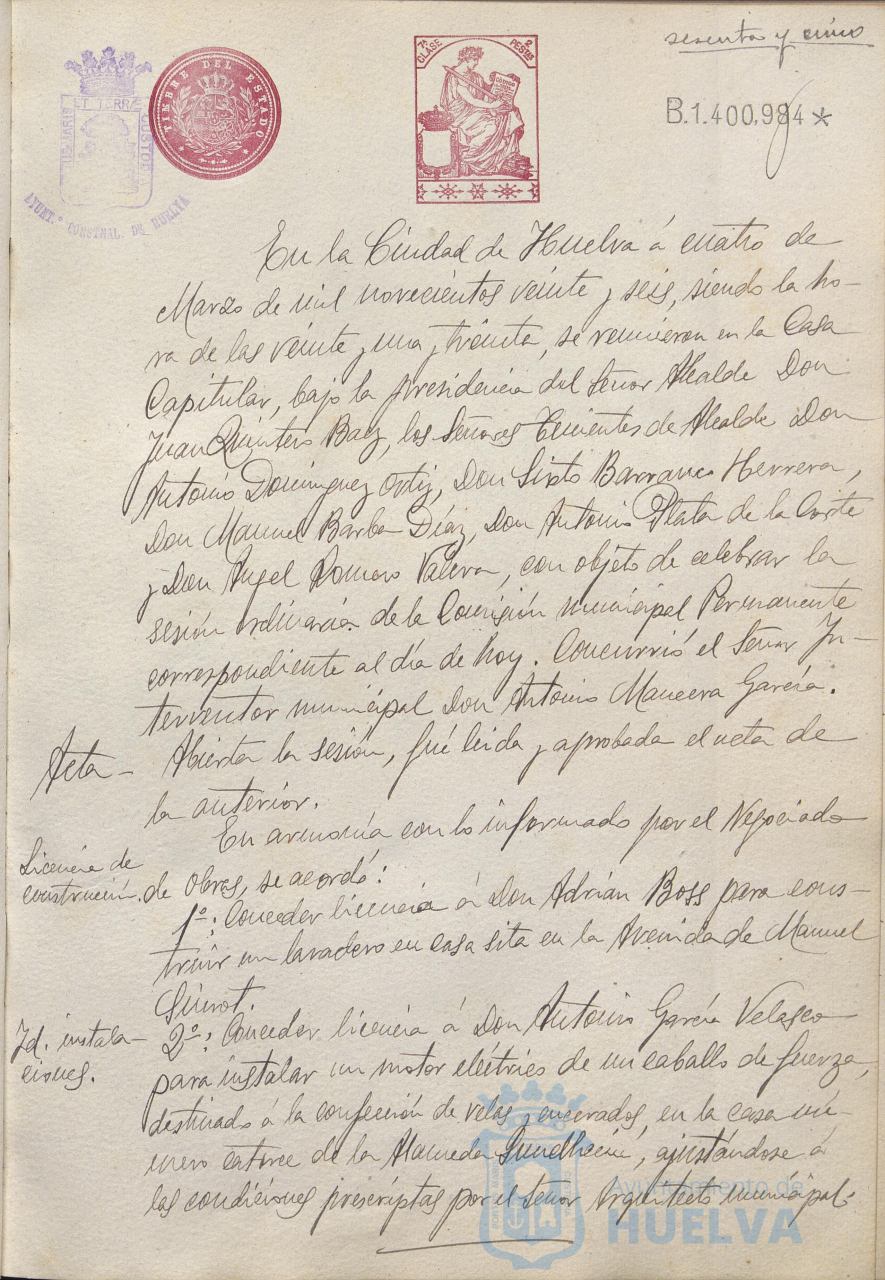 sesenta y cinco
7ª CLASE 2 PESTAS
TIMBRE DEL ESTADO
ET TERRÆ CUSTOS
AYUNT.º CONSTNAL. DE HUELVA
B.1.400,984*
En la Ciudad de Huelva á cuatro de
Marzo de mil novecientos veinte y seis, siendo la ho-
ra de las veinte y una y treinta, se reunieron en la Casa
Capitular, bajo la presidencia del Señor Alcalde Don
Juan Quintero Baez, los Señores Tenientes de Alcalde Don
Antonio Dominguez Ortiz, Don Sixto Barranco Herrera,
Don Manuel Barba Díaz, Don Antonio Plata de la Corte
y Don Angel Romero Valera, con objeto de celebrar la
sesión ordinaria de la Comisión municipal Permanente
correspondiente al día de hoy. Concurrió el Señor In-
terventor municipal Don Antonio Mancera García.
Acta- Abierta la sesión, fué leida y aprobada el acta de
la anterior.
En armonía con lo informado por el Negociado
Licencia de construcción. de Obras, se acordó:
1º: Conceder licencia á Don Adrián Boss para cons-
truir un lavadero en casa sita en la Avenida de Manuel
Siurot.
Id. instala- 2º: Conceder licencia á Don Antonio García Velasco
ciones. para instalar un motor eléctrico de un caballo de fuerza,
destinado á la confección de velas y encerados, en la casa nú-
mero catorce de la Alameda Sundheim, ajustándose á
las condiciones prescriptas por el Señor Arquitecto municipal.
Ayuntamiento de
HUELVA